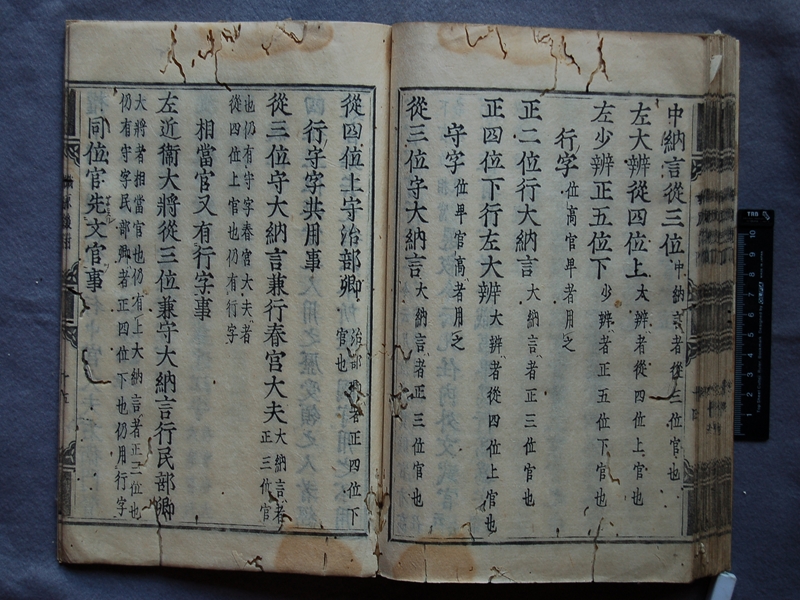 中納言從三位 中納言者從三位官也
左大辨從四位上 大辨者從四位上官也
左少辨正五位下 少辨者正五位下官也
行字 位高官卑者用之
正二位行大納言 大納言者正三位官也
正四位下行左大辨 大辨者從四位上官也
守字 位卑官高者用之
從三位守大納言 大納言者正三位官也
從四位上守治部卿 治部卿者正四位下
官也
行守字共用事
從三位守大納言兼行春宮大夫 大納言者
正三位官
也仍有守字春宮大夫者
從四位上官也仍有行字
相當官又有行字事
左近衛大將從三位兼守大納言行民部卿
大將者相當官也仍有上大納言者正三位也
仍有守字民部卿者正四位下也仍用行字
同位官先文官事
10 9 8 7 6 5 4 3 2 1